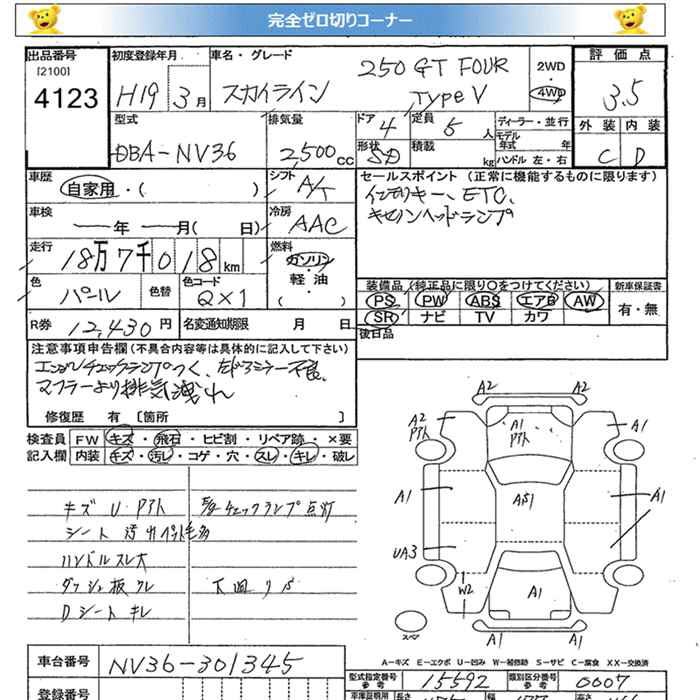 完全ゼロ切りコーナー
出品番号 初度登録年月 車名・グレード 評価点
[2100]
4123
H19 3月 スカイライン 250 GT FOUR TYPE V
2WD
4WD
3.5
型式 排気量 ドア 定員 ディーラー・並行 外装 内装
DBA-NV36 2,500cc 4 5人
モデル年式 年
形状 SD 積載 kg ハンドル 左・右
C D
車歴 自家用・( ) シフト A/T
セールスポイント (正常に機能するものに限ります)
インテリキー、ETC、
キセノンヘッドランプ
車検 年 月( 日) 冷房 AAC
走行 18万7千018km
燃料 ガソリン
軽・油
( )
色 パール 色替 色コード QX1
装備品 (純正品に限り〇をつけてください) 新車保証書
PS PW ABS エアB AW 有・無
SR ナビ TV カワ
R券 12,430円 名変通知期限 月 日
後日品
注意事項申告欄(不具合内容等は具体的に記入して下さい)
エンジンチェックランプつく、左ドアミラー不良、
マフラーより排気洩れ
修復歴 有 [箇所 ]
検査員 FW キズ・飛石・ヒビ割・リペア跡・×要
記入欄 内装 キズ・汚レ・コゲ・穴・スレ・キレ・破レ
キズ U. Pアト
E/gチェックランプ点灯
シート 汚れ ペット毛多
ハンドルスレ大
ダッシュ板ワレ
下回りサビ
Dシート キレ
A2 A2
A2
Pアト
A1
Pアト
A1
A1
A51
A1
UA3
W2
A1
A1 A1
スペア
A―キズ E―エクボ U―凹み W―補修跡 S―サビ C―腐食 XX―交換済
車台番号 NV36-301345
型式指定番号 参考 15592 類別区分番号 参考 0007
登録番号
車庫証明用 長さ 幅 高さ